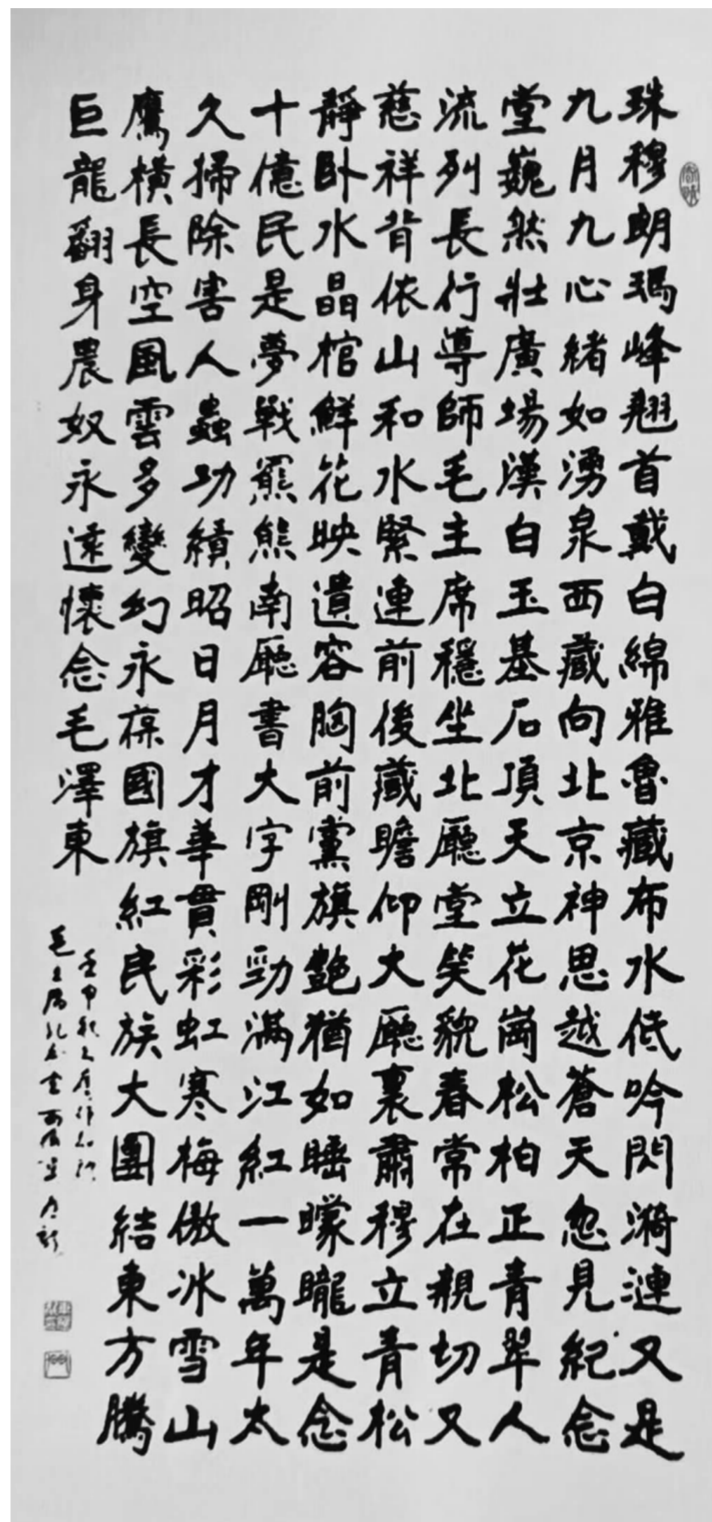 珠穆朗瑪峰翹首戴白綿雅魯藏布水低吟閃漪漣又是
九月九心緒如湧泉西藏向北京神思越蒼天忽見紀念
堂巍然壯廣場漢白玉基石頂天立花崗松柏正青翠人
流列長行導師毛主席穩坐北廳堂笑貌春常在親切又
慈祥背依山和水緊連前後藏瞻仰大廳裏肅穆立青松
靜臥水晶棺鮮花映遺容胸前黨旗艷猶如睡曚曨是念
十億民是夢戰羆熊南廳書大字剛勁滿江紅一萬年太
久掃除害人蟲功績昭日月才華貫彩虹寒梅傲冰雪山
鷹橫長空風雲多變幻永葆國旗紅民族大團結東方騰
巨龍翻身農奴永遠懷念毛澤東